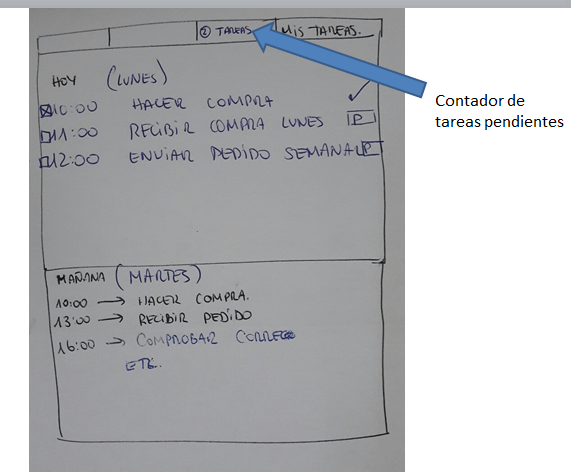 ② TAREAS MIS TAREAS.
HOY (LUNES)
10:00 HACER COMPRA
11:00 RECIBIR COMPRA LUNES P
12:00 ENVIAR PEDIDO SEMANAL P
MAÑANA (MARTES)
10:00 → HACER COMPRA.
13:00 → RECIBIR PEDIDO
16:00 → COMPROBAR CORREO
ETC..
Contador de
tareas pendientes